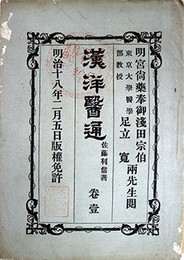 明宮尚藥奉御淺田宗伯
東京大學醫學部教授 足立寛 兩先生閲
漢洋醫通
佐藤利信著
卷壹
明治十八年二月五日版權免許